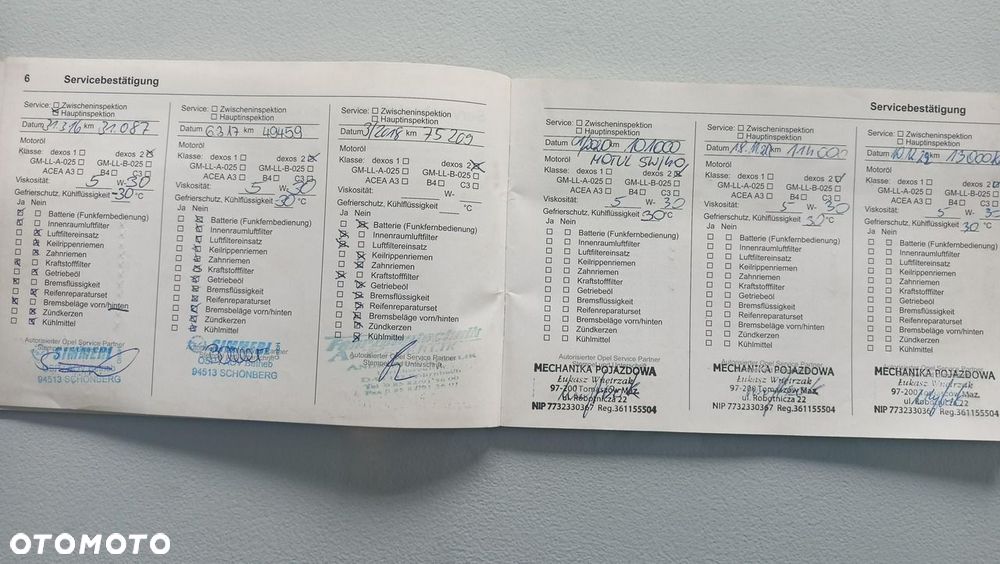 6 Servicebestätigung
Service: Zwischeninspektion
Hauptinspektion
Datum 31.3.16 km 31.087
Motoröl
Klasse: dexos 1 dexos 2
GM-LL-A-025 GM-LL-B-025
ACEA A3 B4 C3
Viskosität: 5 W- 30
Gefrierschutz, Kühlflüssigkeit -30 °C
Ja Nein
Batterie (Funkfernbedienung)
Innenraumluftfilter
Luftfiltereinsatz
Keilrippenriemen
Zahnriemen
Kraftstofffilter
Getriebeöl
Bremsflüssigkeit
Reifenreparaturset
Bremsbeläge vorn/hinten
Zündkerzen
Kühlmittel
Autorisierter Opel Service Partner
SIMMERL
94513 SCHÖNBERG
Service: Zwischeninspektion
Hauptinspektion
Datum 6.3.17 km 49459
Motoröl
Klasse: dexos 1 dexos 2
GM-LL-A-025 GM-LL-B-025
ACEA A3 B4 C3
Viskosität: 5 W- 30
Gefrierschutz, Kühlflüssigkeit 30 °C
Ja Nein
Batterie (Funkfernbedienung)
Innenraumluftfilter
Luftfiltereinsatz
Keilrippenriemen
Zahnriemen
Kraftstofffilter
Getriebeöl
Bremsflüssigkeit
Reifenreparaturset
Bremsbeläge vorn/hinten
Zündkerzen
Kühlmittel
Autorisierter Opel Service Partner
SIMMERL
94513 SCHÖNBERG
Service: Zwischeninspektion
Hauptinspektion
Datum 3/2018 km 75209
Motoröl
Klasse: dexos 1 dexos 2
GM-LL-A-025 GM-LL-B-025
ACEA A3 B4 C3
Viskosität: W-
Gefrierschutz, Kühlflüssigkeit °C
Ja Nein
Batterie (Funkfernbedienung)
Innenraumluftfilter
Luftfiltereinsatz
Keilrippenriemen
Zahnriemen
Kraftstofffilter
Getriebeöl
Bremsflüssigkeit
Reifenreparaturset
Bremsbeläge vorn/hinten
Zündkerzen
Kühlmittel
Autorisierter Opel Service Partner
Stempel und Unterschrift
Servicebestätigung
Service: Zwischeninspektion
Hauptinspektion
Datum 01/2020 km 101000
Motoröl MOTUL 5W40
Klasse: dexos 1 dexos 2
GM-LL-A-025 GM-LL-B-025
ACEA A3 B4 C3
Viskosität: 5 W- 30
Gefrierschutz, Kühlflüssigkeit 30 °C
Ja Nein
Batterie (Funkfernbedienung)
Innenraumluftfilter
Luftfiltereinsatz
Keilrippenriemen
Zahnriemen
Kraftstofffilter
Getriebeöl
Bremsflüssigkeit
Reifenreparaturset
Bremsbeläge vorn/hinten
Zündkerzen
Kühlmittel
Autorisierter Opel Service Partner
MECHANIKA POJAZDOWA
Łukasz Wnętrzak
97-200 Tomaszów Maz.
ul. Robotnicza 22
NIP 7732330367 Reg.361155504
Service: Zwischeninspektion
Hauptinspektion
Datum 18.11.21 km 114000
Motoröl
Klasse: dexos 1 dexos 2
GM-LL-A-025 GM-LL-B-025
ACEA A3 B4 C3
Viskosität: 5 W- 30
Gefrierschutz, Kühlflüssigkeit 30 °C
Ja Nein
Batterie (Funkfernbedienung)
Innenraumluftfilter
Luftfiltereinsatz
Keilrippenriemen
Zahnriemen
Kraftstofffilter
Getriebeöl
Bremsflüssigkeit
Reifenreparaturset
Bremsbeläge vorn/hinten
Zündkerzen
Kühlmittel
Autorisierter Opel Service Partner
MECHANIKA POJAZDOWA
Łukasz Wnętrzak
97-200 Tomaszów Maz.
ul. Robotnicza 22
NIP 7732330367 Reg.361155504
Service: Zwischeninspektion
Hauptinspektion
Datum km
Motoröl
Klasse: dexos 1 dexos 2
GM-LL-A-025 GM-LL-B-025
ACEA A3 B4 C3
Viskosität: 5 W- 3
Gefrierschutz, Kühlflüssigkeit 30 °C
Ja Nein
Batterie (Funkfernbedienung)
Innenraumluftfilter
Luftfiltereinsatz
Keilrippenriemen
Zahnriemen
Kraftstofffilter
Getriebeöl
Bremsflüssigkeit
Reifenreparaturset
Bremsbeläge vorn/hinten
Zündkerzen
Kühlmittel
Autorisierter Opel Service Partner
MECHANIKA POJAZDOWA
Łukasz Wnętrzak
97-200 Tomaszów Maz.
ul. Robotnicza 22
NIP 7732330367 Reg.361155504
OTOMOTO